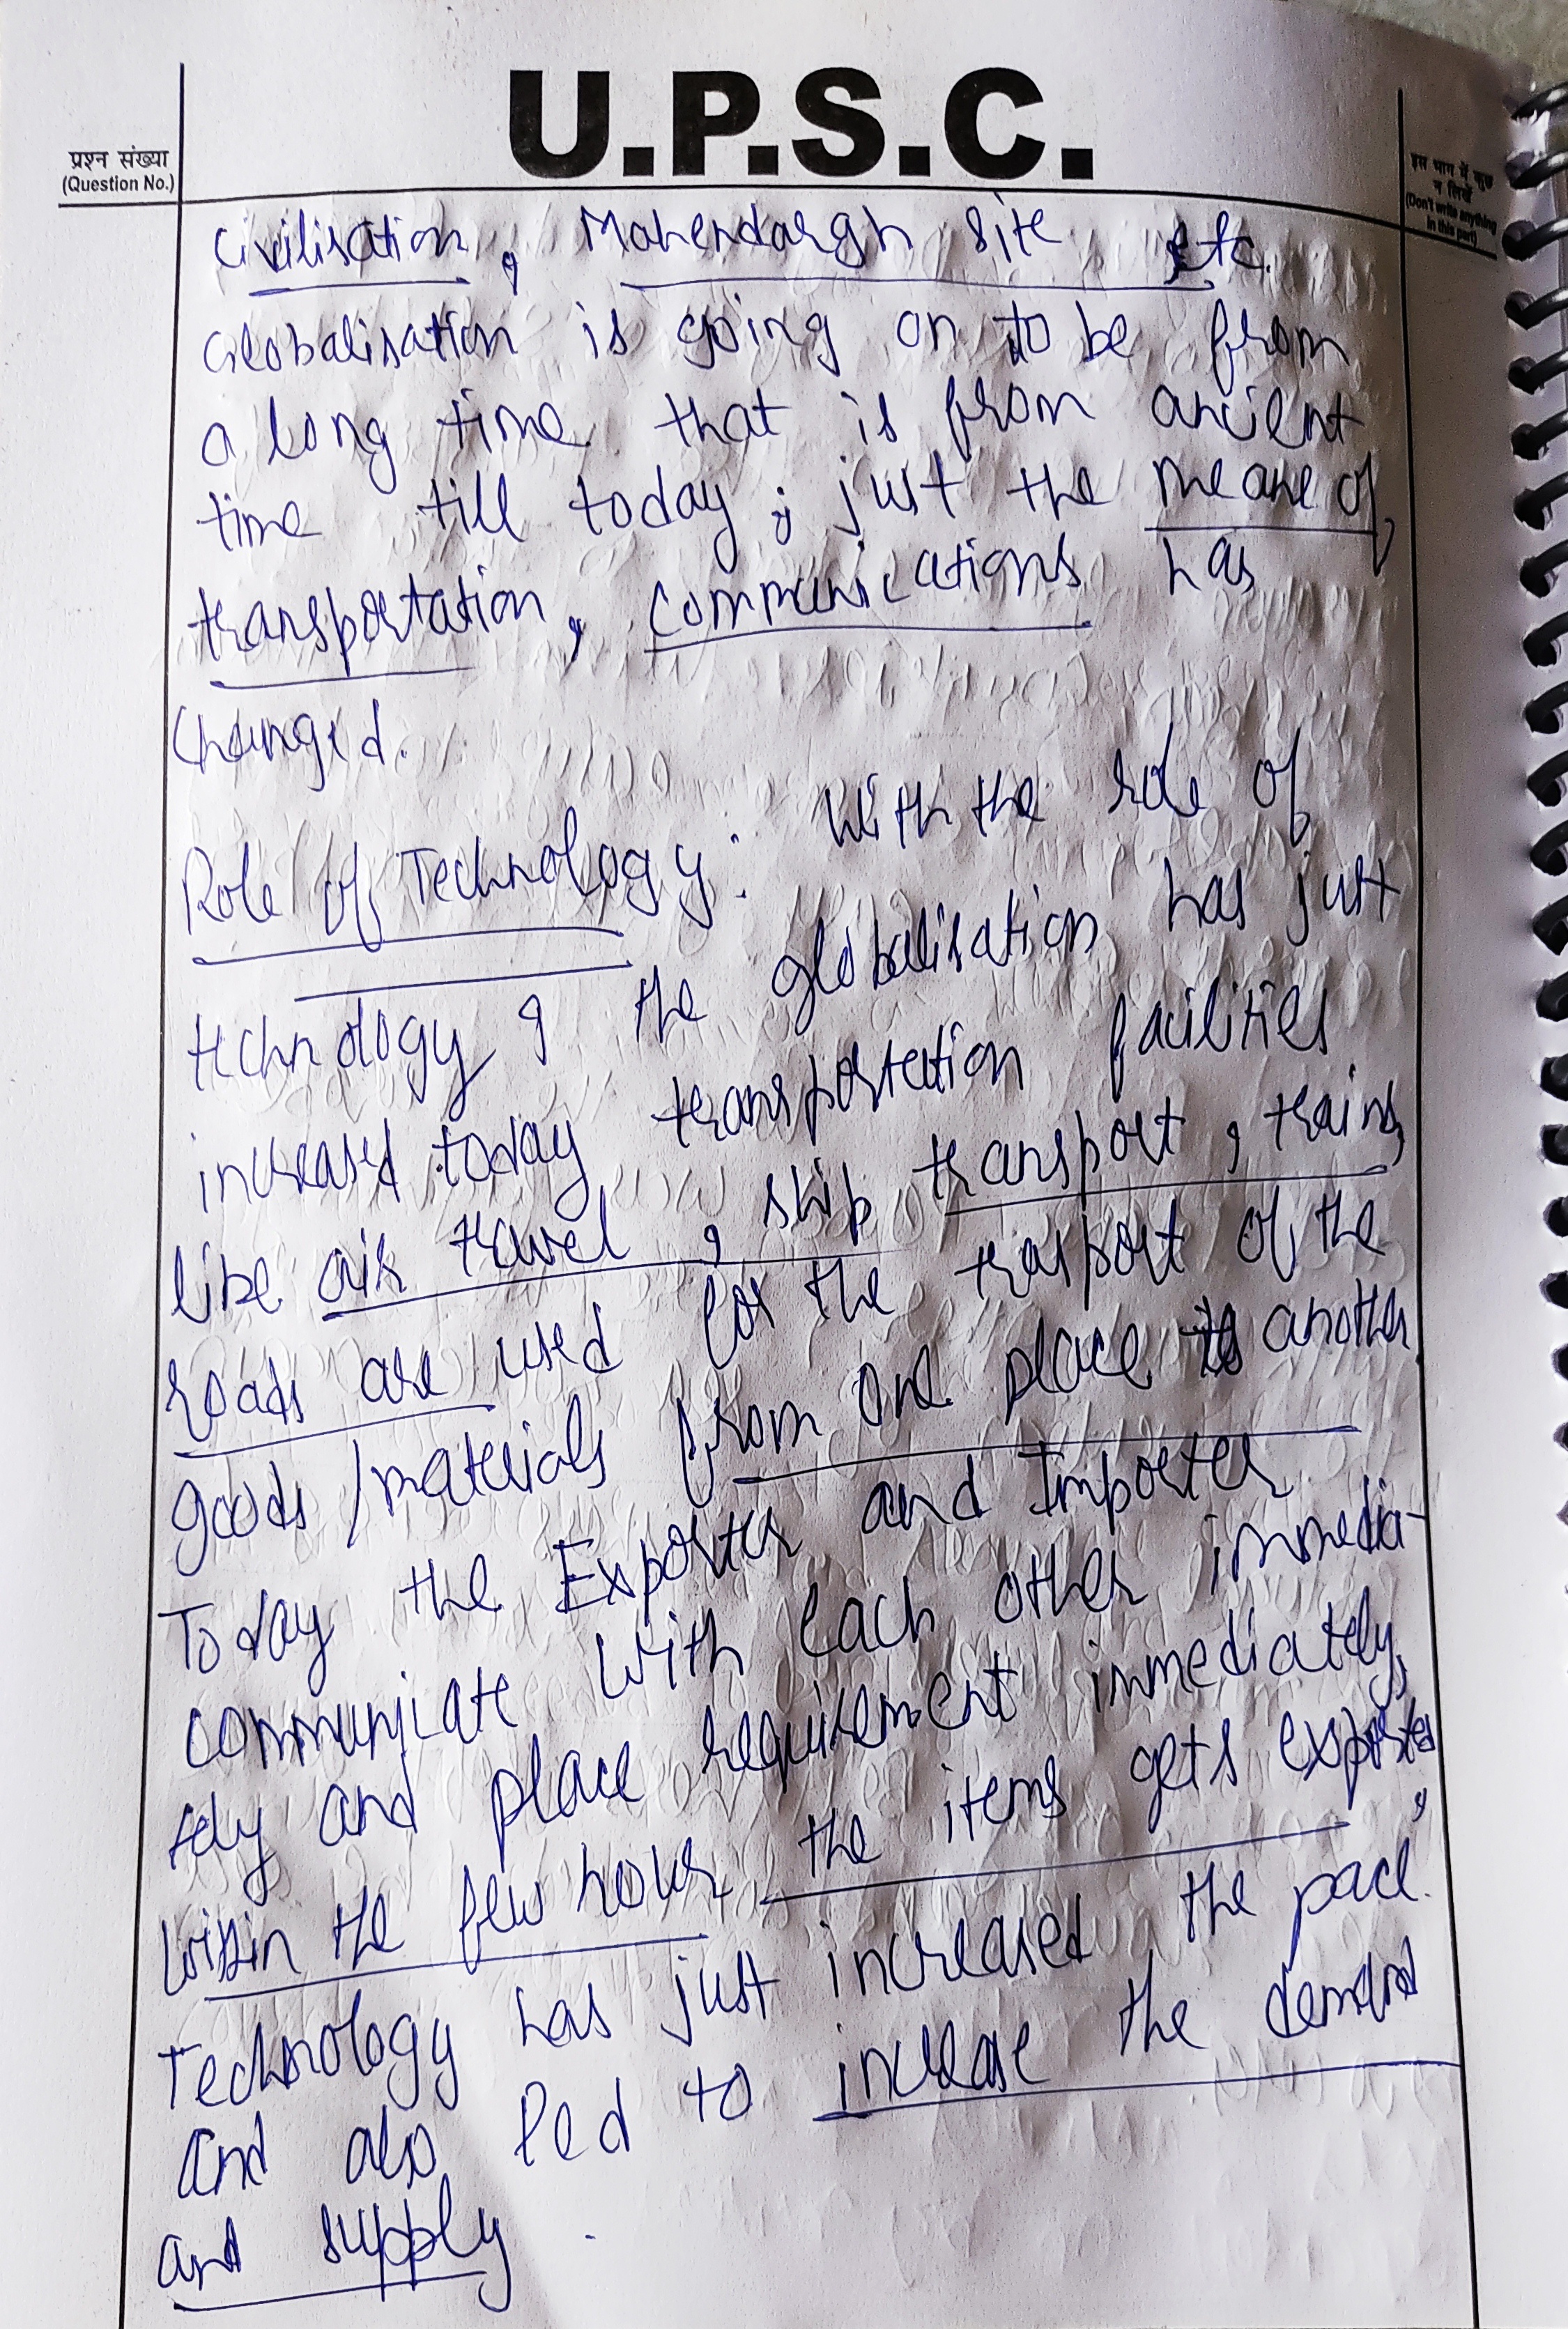 U.P.S.C.
प्रश्न संख्या
(Question No.)
इस भाग में कुछ
न लिखें
(Don't write anything
in this part)
Civilisation, Mahendargh site etc.
Globalisation is going on to be from
a long time that is from ancient
time till today; just the meane of
transportation, communications has
changed.
Role of Technology: With the role of
technology, the globalisation has just
increased today transportation facilities
like air travel, ship transport, trains,
roads are used for the trasport of the
goods/materials from one place to another
Today the Exporter and Importer
communicate with each other immedia-
tely and place requirement immediately,
within the few hours the items gets exported,
Technology has just increased the pace.
and also led to increase the demand
and supply.